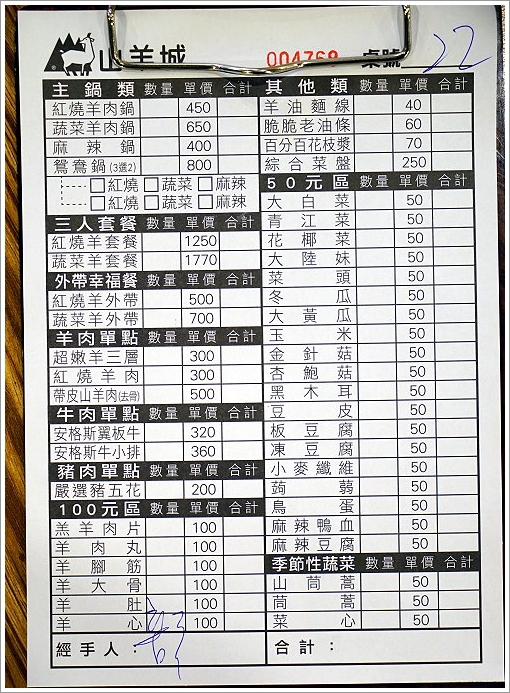 山羊城 004768 桌號 22
主鍋類 數量 單價 合計
紅燒羊肉鍋 450
蔬菜羊肉鍋 650
麻辣鍋 400
鴛鴦鍋(3選2) 800
□紅燒 □蔬菜 □麻辣
□紅燒 □蔬菜 □麻辣
三人套餐 數量 單價 合計
紅燒羊套餐 1250
蔬菜羊套餐 1770
外帶幸福餐 數量 單價 合計
紅燒羊外帶 500
蔬菜羊外帶 700
羊肉單點 數量 單價 合計
超嫩羊三層 300
紅燒羊肉 300
帶皮山羊肉(去骨) 500
牛肉單點 數量 單價 合計
安格斯翼板牛 320
安格斯牛小排 360
豬肉單點 數量 單價 合計
嚴選豬五花 200
100元區 數量 單價 合計
羔羊肉片 100
羊肉丸 100
羊腳筋 100
羊大骨 100
羊肚 100
羊心 100
經手人：
其他類 數量 單價 合計
羊油麵線 40
脆脆老油條 60
百分百花枝漿 70
綜合菜盤 250
50元區 數量 單價 合計
大白菜 50
青江菜 50
花椰菜 50
大陸妹 50
菜頭 50
冬瓜 50
大黃瓜 50
玉米 50
金針菇 50
杏鮑菇 50
黑木耳 50
豆皮 50
板豆腐 50
凍豆腐 50
小麥纖維 50
蒟蒻 50
鳥蛋 50
麻辣鴨血 50
麻辣豆腐 50
季節性蔬菜 數量 單價 合計
山茼蒿 50
茼蒿 50
菜心 50
合計：